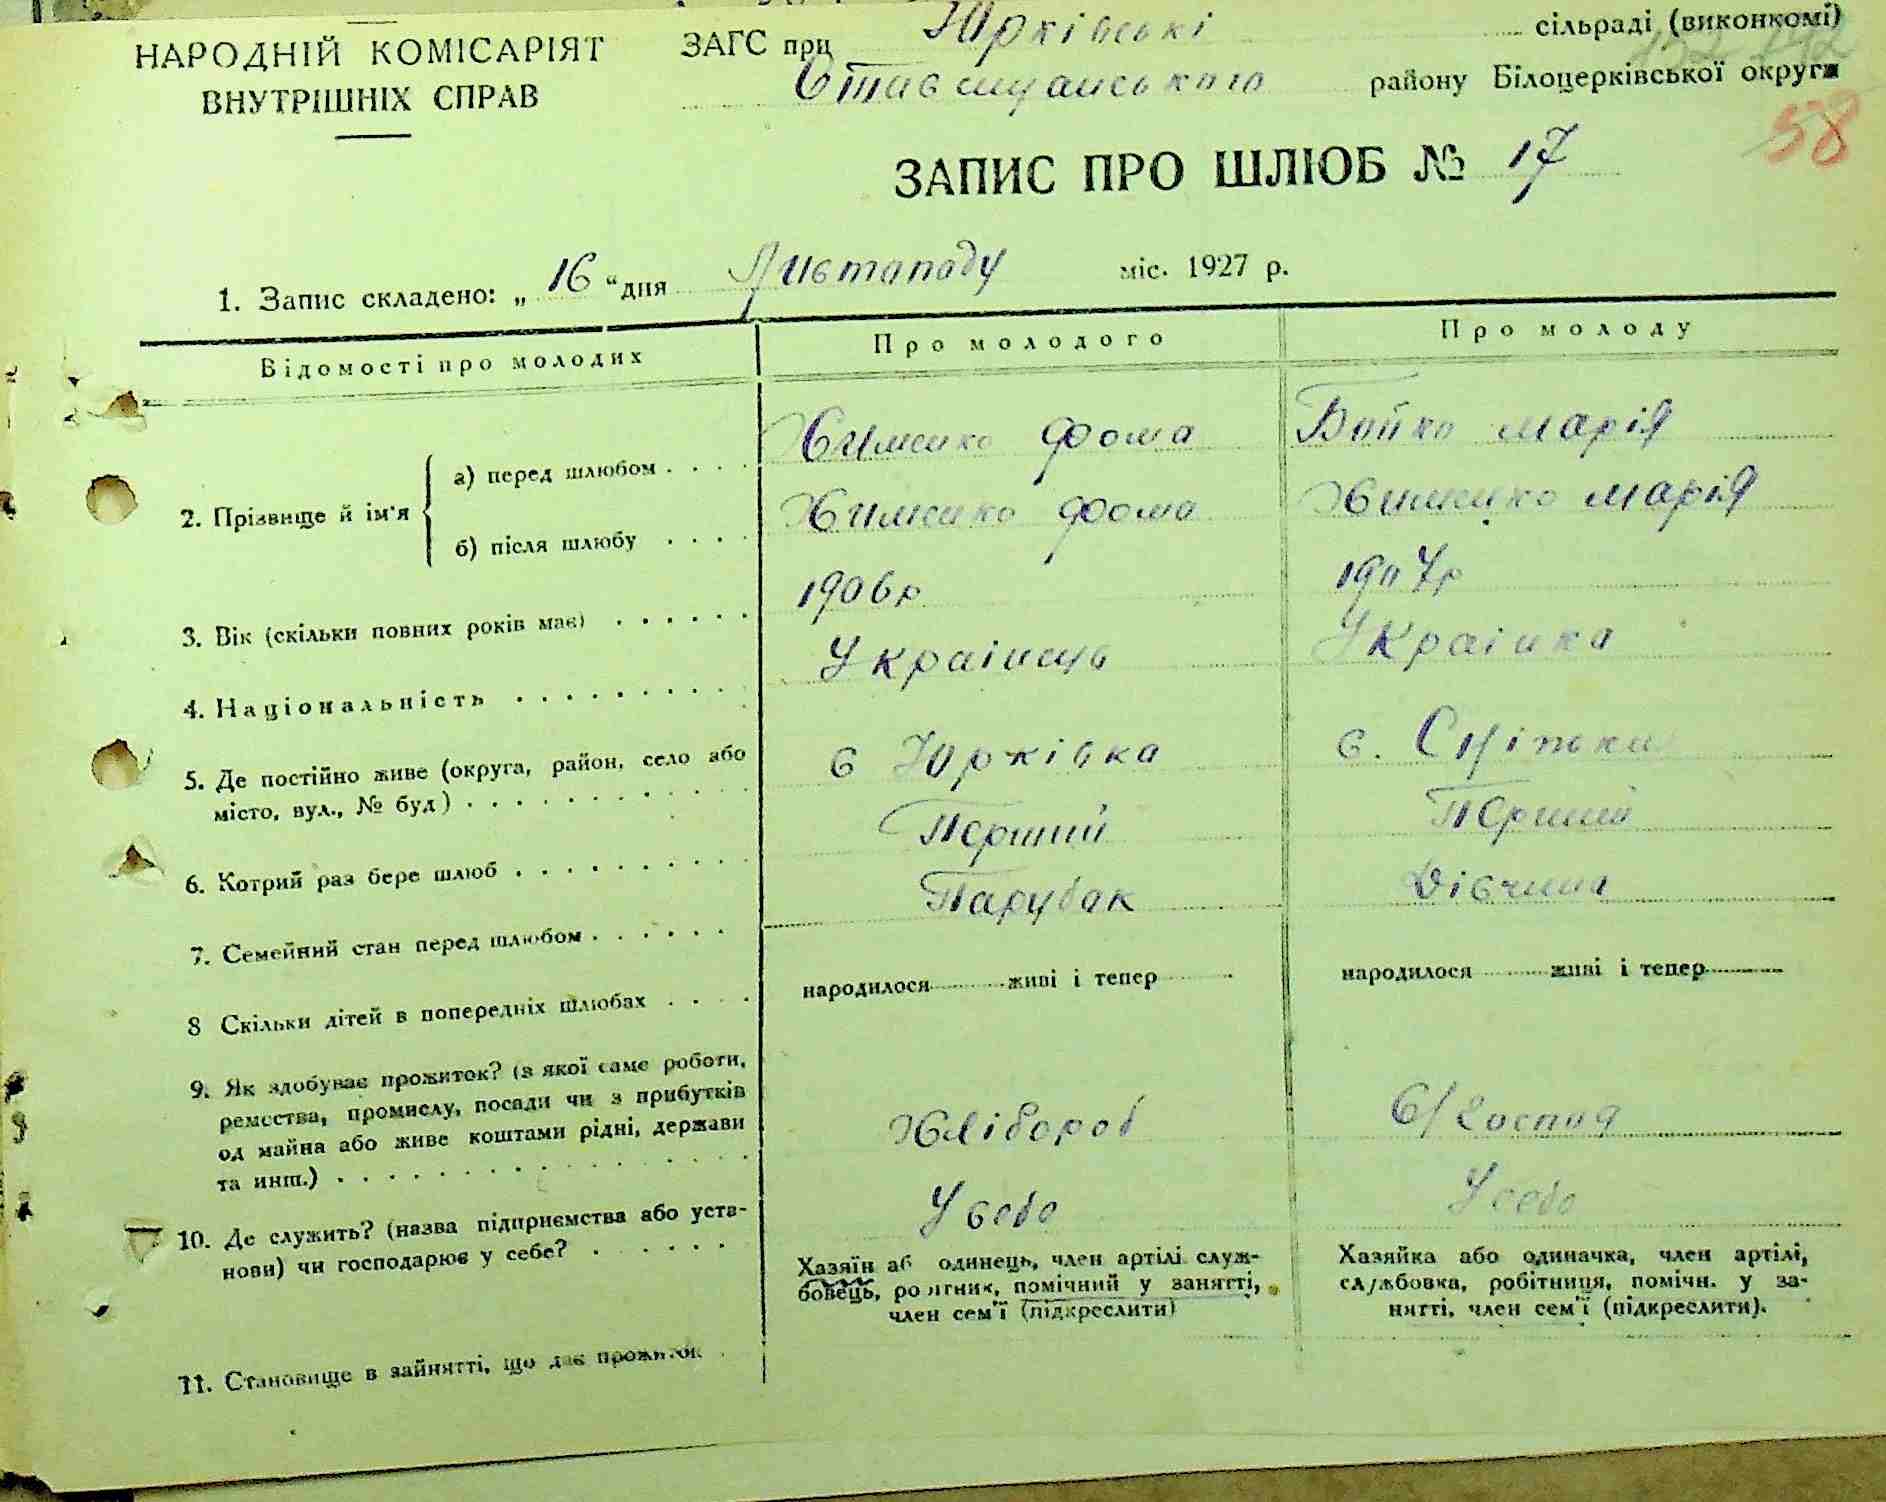 НАРОДНІЙ КОМІСАРІЯТ
ВНУТРІШНІХ СПРАВ
ЗАГС при Юрківські сільраді (виконкомі)
Ставищанського району Білоцерківської округи
58
ЗАПИС ПРО ШЛЮБ № 17
1. Запис складено: „ 16 “ дня Листопаду міс. 1927 р.
Відомості про молодих
Про молодого
Про молоду
2. Прізвище й ім'я
а) перед шлюбом
Хименко Фома
Бойко Марія
б) після шлюбу
Хименко Фома
Хименко Марія
3. Вік (скільки повних років має)
1906р
1907р
4. Національність
Украінець
Украінка
5. Де постійно живе (округа, район, село або
місто, вул., № буд)
с Юрківка
с.
6. Котрий раз бере шлюб
Перший
Перший
7. Семейний стан перед шлюбом
Парубак
Дівчина
8 Скільки дітей в попередніх шлюбах
народилося живі і тепер
народилося живі і тепер
9. Як здобуває прожиток? (з якої саме роботи,
ремества, промислу, посади чи з прибутків
од майна або живе коштами рідні, держави
та инш.)
Хлібороб
С/господ
10. Де служить? (назва підприємства або уста-
нови) чи господарює у себе?
У себе
У себе
11. Становище в зайнятті, що дає прожиток
Хазяїн або одинець, член артілі служ-
бовець, робітник, помічний у занятті,
член сем'ї (підкреслити)
Хазяйка або одиначка, член артілі,
службовка, робітниця, помічн. у за-
нятті, член сем'ї (підкреслити).